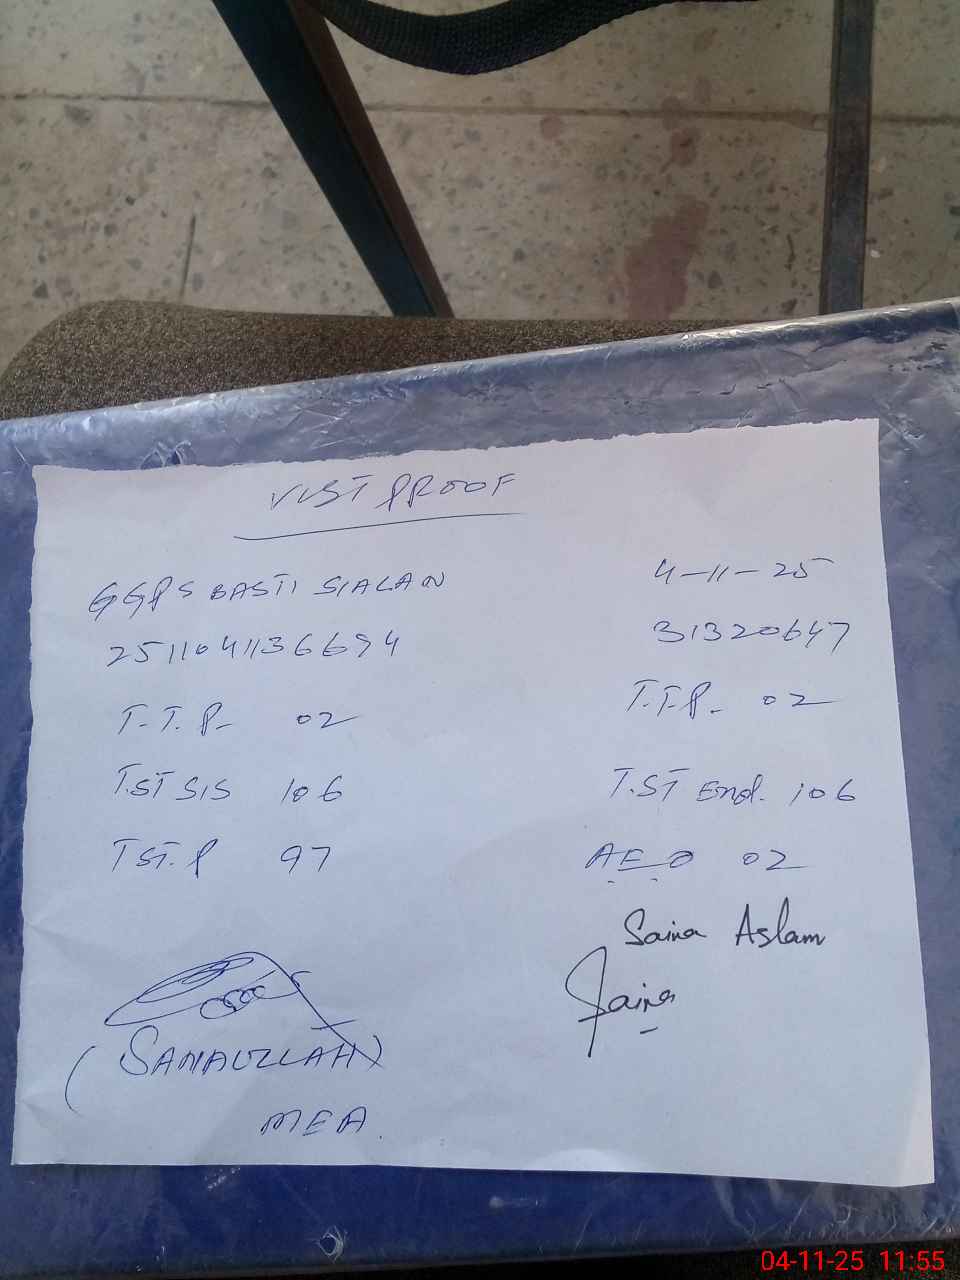 VISIT PROOF
GGPS BASTI SIALAN 4-11-25
2511041136694 31320647
T.T.P- 02 T.T.P- 02
T.ST SIS 106 T.ST Enol. 106
TST.P 97 A.E.O 02
Saina Aslam
Saina
(SANAULLAH)
MEA.
04-11-25 11:55